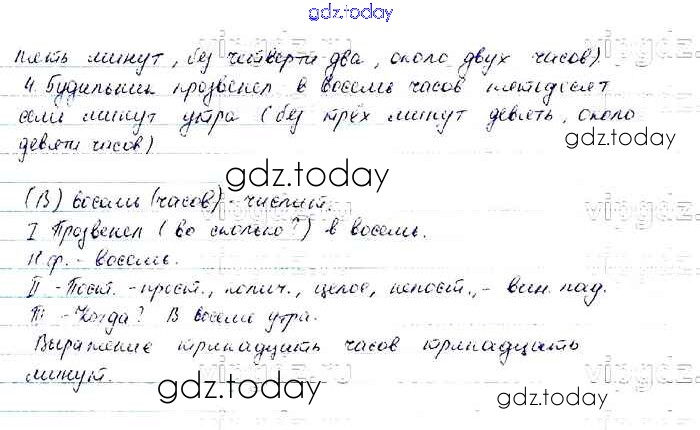 gdz.today
пять минут, без четверти два, около двух часов).
4. Будильник прозвенел в восемь часов пятьдесят
семь минут утра (без трёх минут девять, около
девяти часов)
gdz.today
gdz.today
(В) восемь (часов) - числит.
I Прозвенел (во сколько?) в восемь.
Н.ф. - восемь.
II - Пост. - прост., колич., целое, непост., - вин. пад.
III - Когда? В восемь утра.
Выражение тринадцать часов тринадцать
минут.
gdz.today
gdz.today
vipgdz.ru